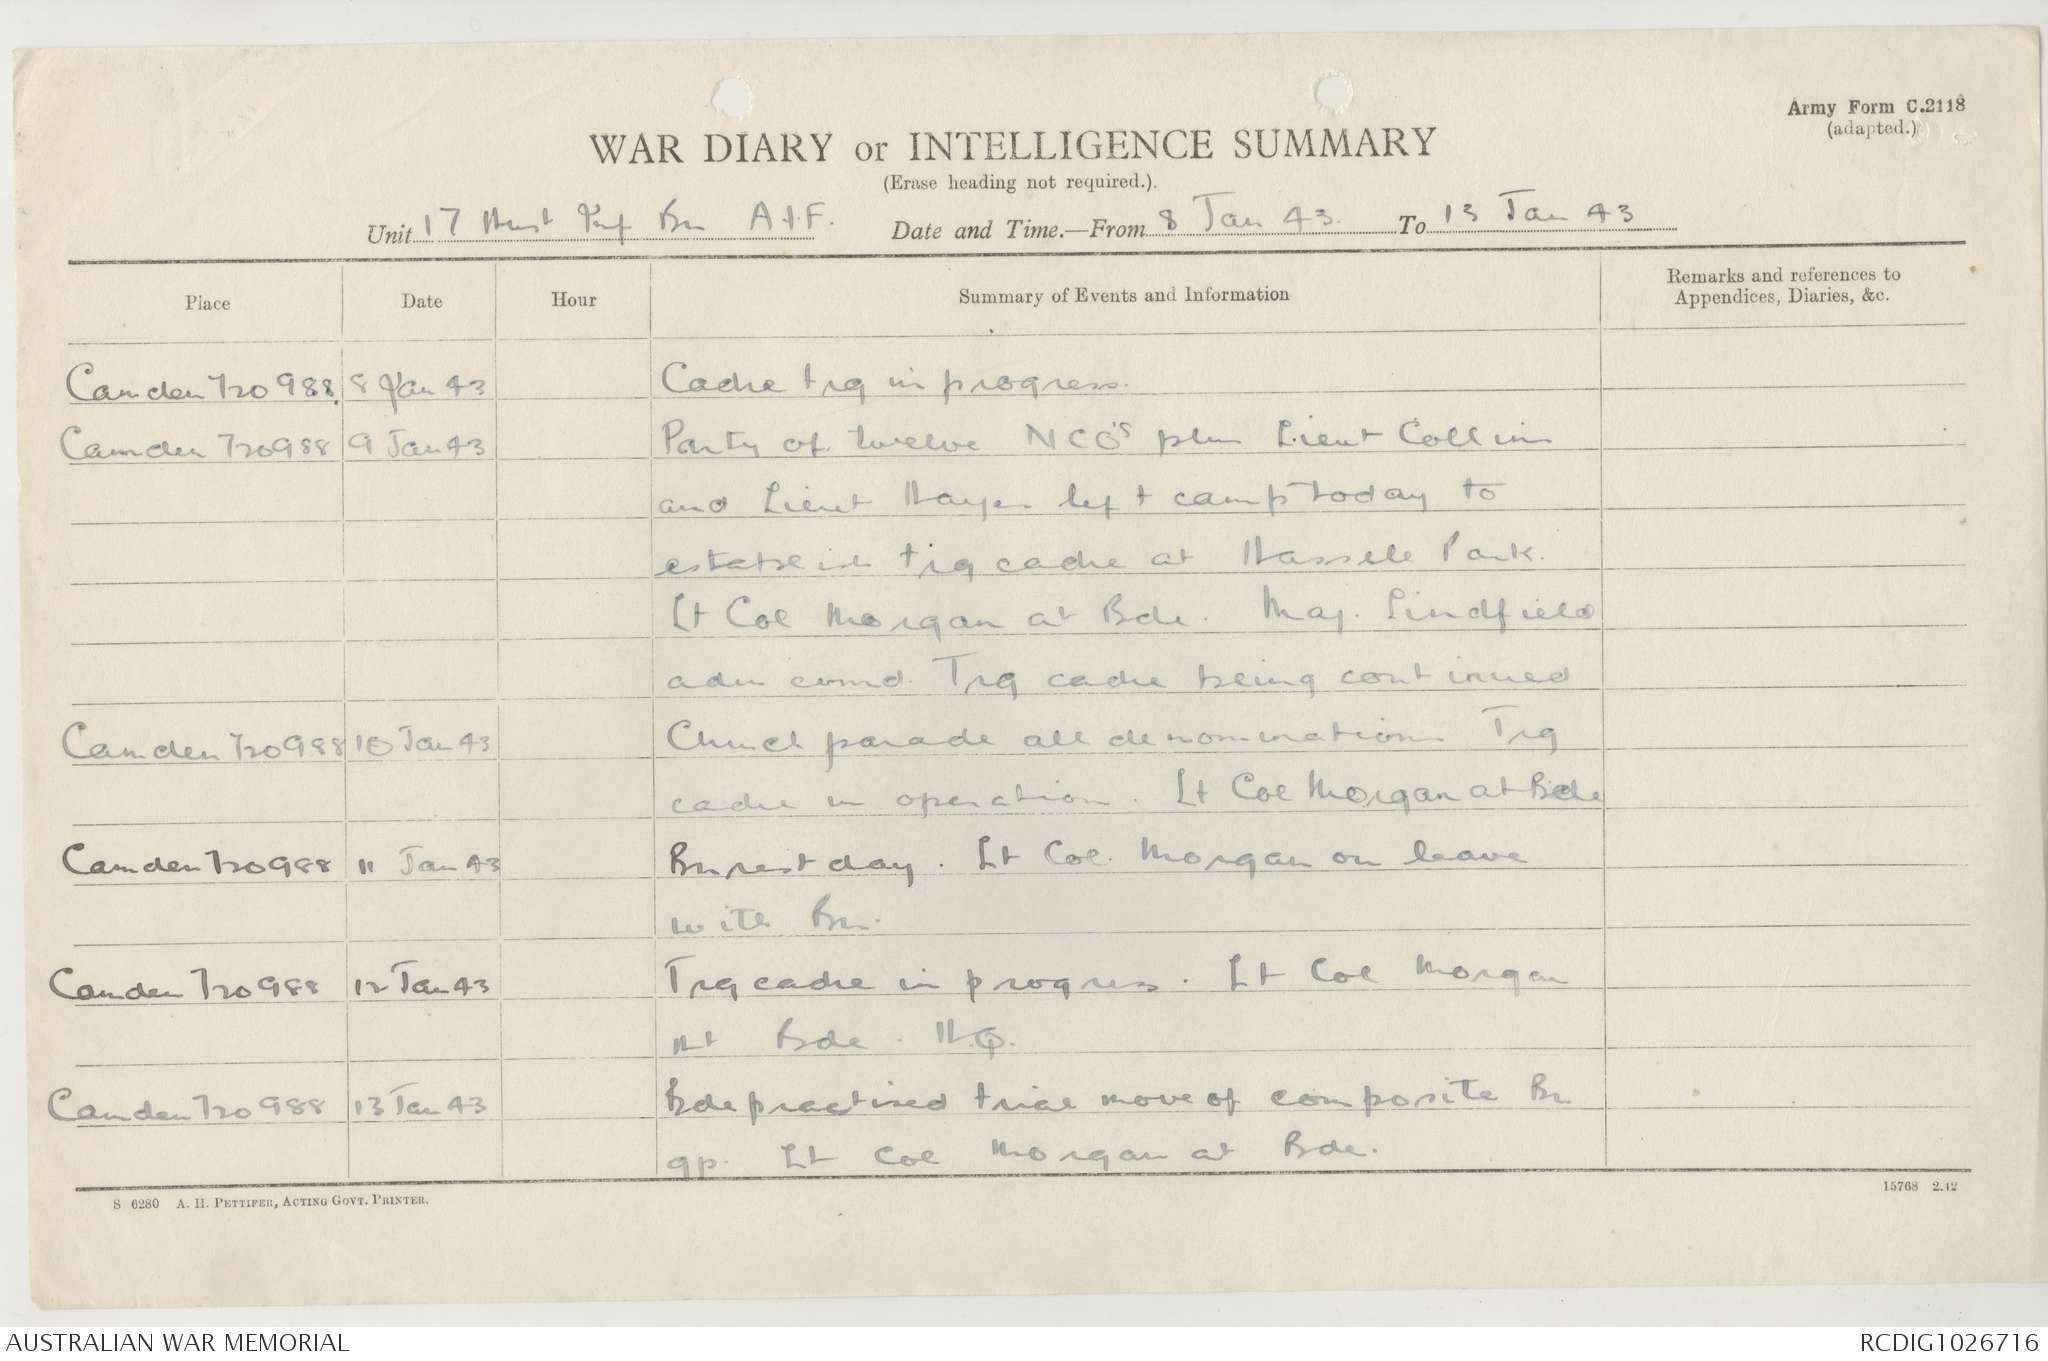 Army Form C.2118
(adapted.)
WAR DIARY or INTELLIGENCE SUMMARY
(Erase heading not required.).
Unit 17 Aust Inf Bn A.I.F. Date and Time.—From 8 Jan 43. To 13 Jan 43
Place Date Hour Summary of Events and Information Remarks and references to Appendices, Diaries, &c.
Camden 720988. 8 Jan 43 Cadre trg in progress.
Camden 720988 9 Jan 43 Party of twelve NCO's plus Lieut Collins
and Lieut Hayes left camp today to
establish trg cadre at Park.
Lt Col Morgan at Bde. Maj. Lindfield
adm comd. Trg cadre being continued
Camden 720988 10 Jan 43 Church parade all denominations Trg
cadre in operation. Lt Col Morgan at Bde
Camden 720988 11 Jan 43 Bn rest day. Lt Col. Morgan on leave
with Bn.
Camden 720988 12 Jan 43 Trg cadre in progress. Lt Col Morgan
At Bde. H.Q.
Camden 720988 13 Jan 43 Bde practised trial move of composite Bn
gp. Lt Col Morgan at Bde.
S 6280 A. H. PETTIFER, ACTING GOVT. PRINTER.
15768 2.42
AUSTRALIAN WAR MEMORIAL
RCDIG1026716